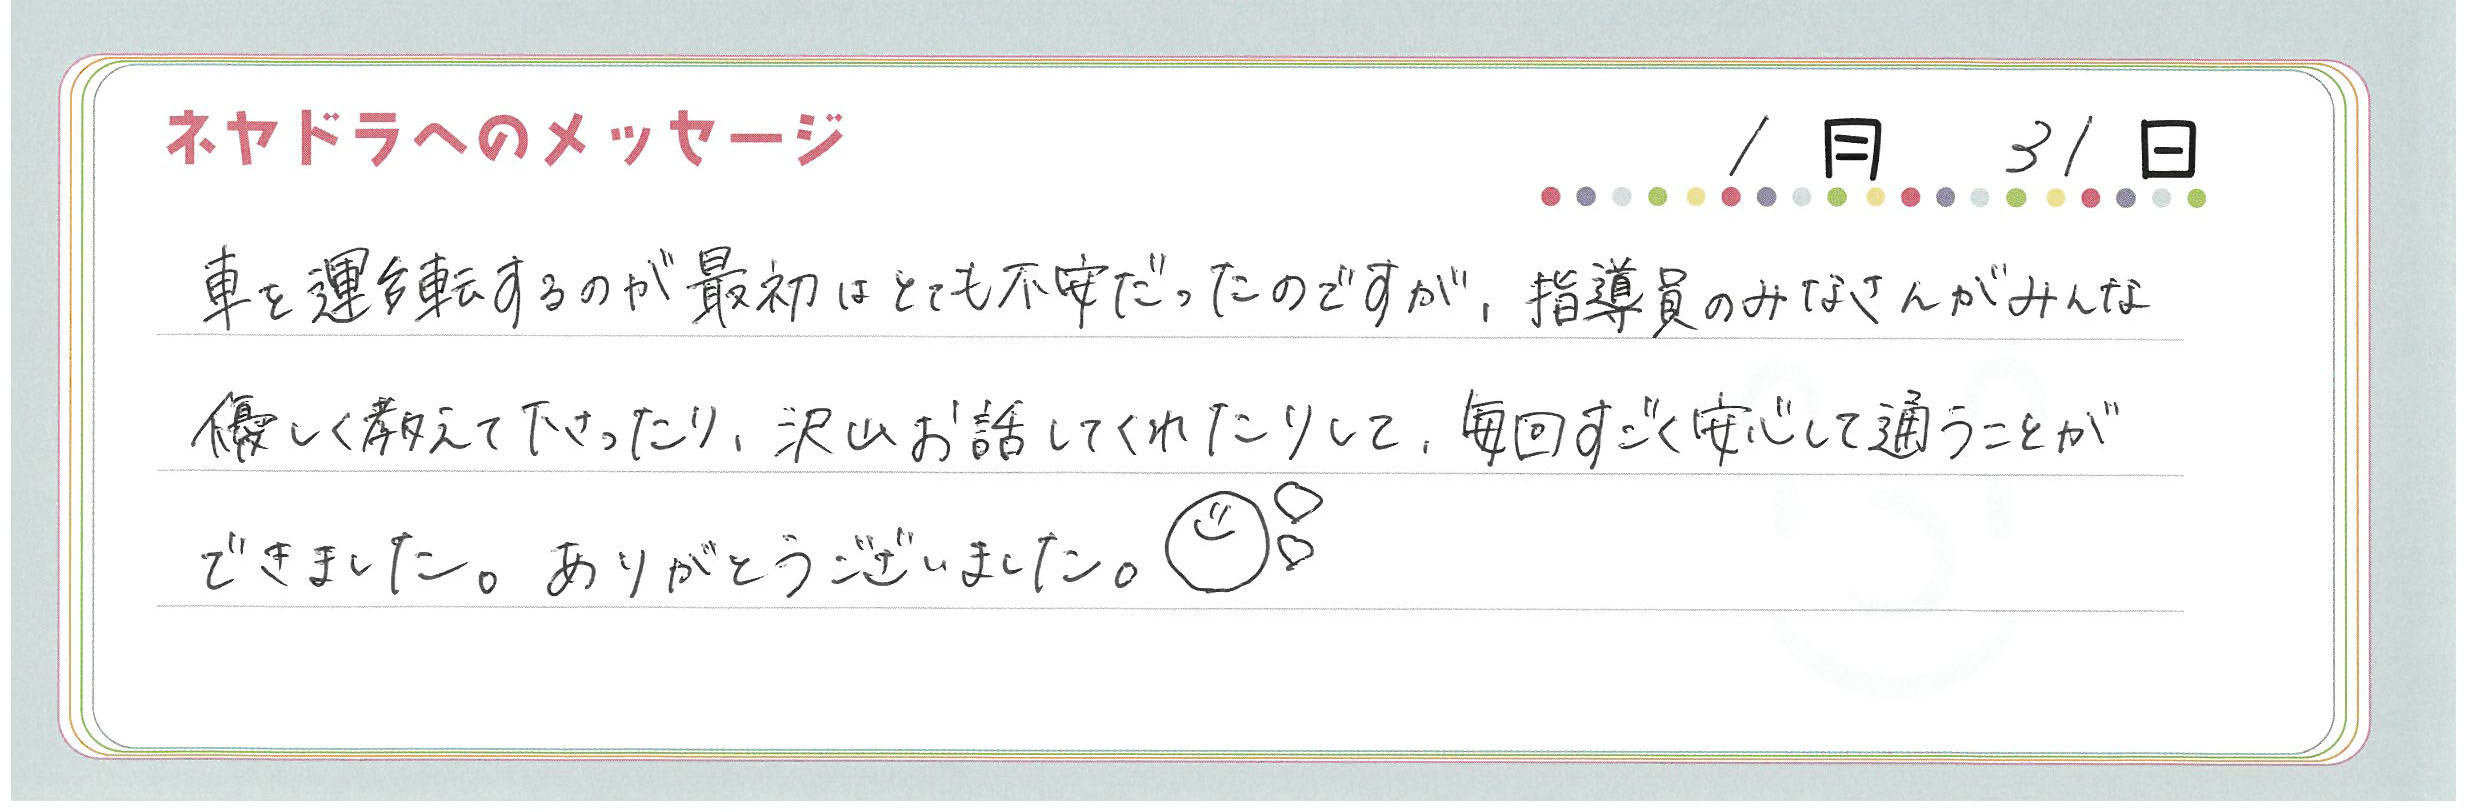 ネヤドラへのメッセージ
1月 31日
車を運転するのが最初はとても不安だったのですが、指導員のみなさんがみんな
優しく教えて下さったり、沢山お話してくれたりして、毎回すごく安心して通うことが
できました。ありがとうございました。